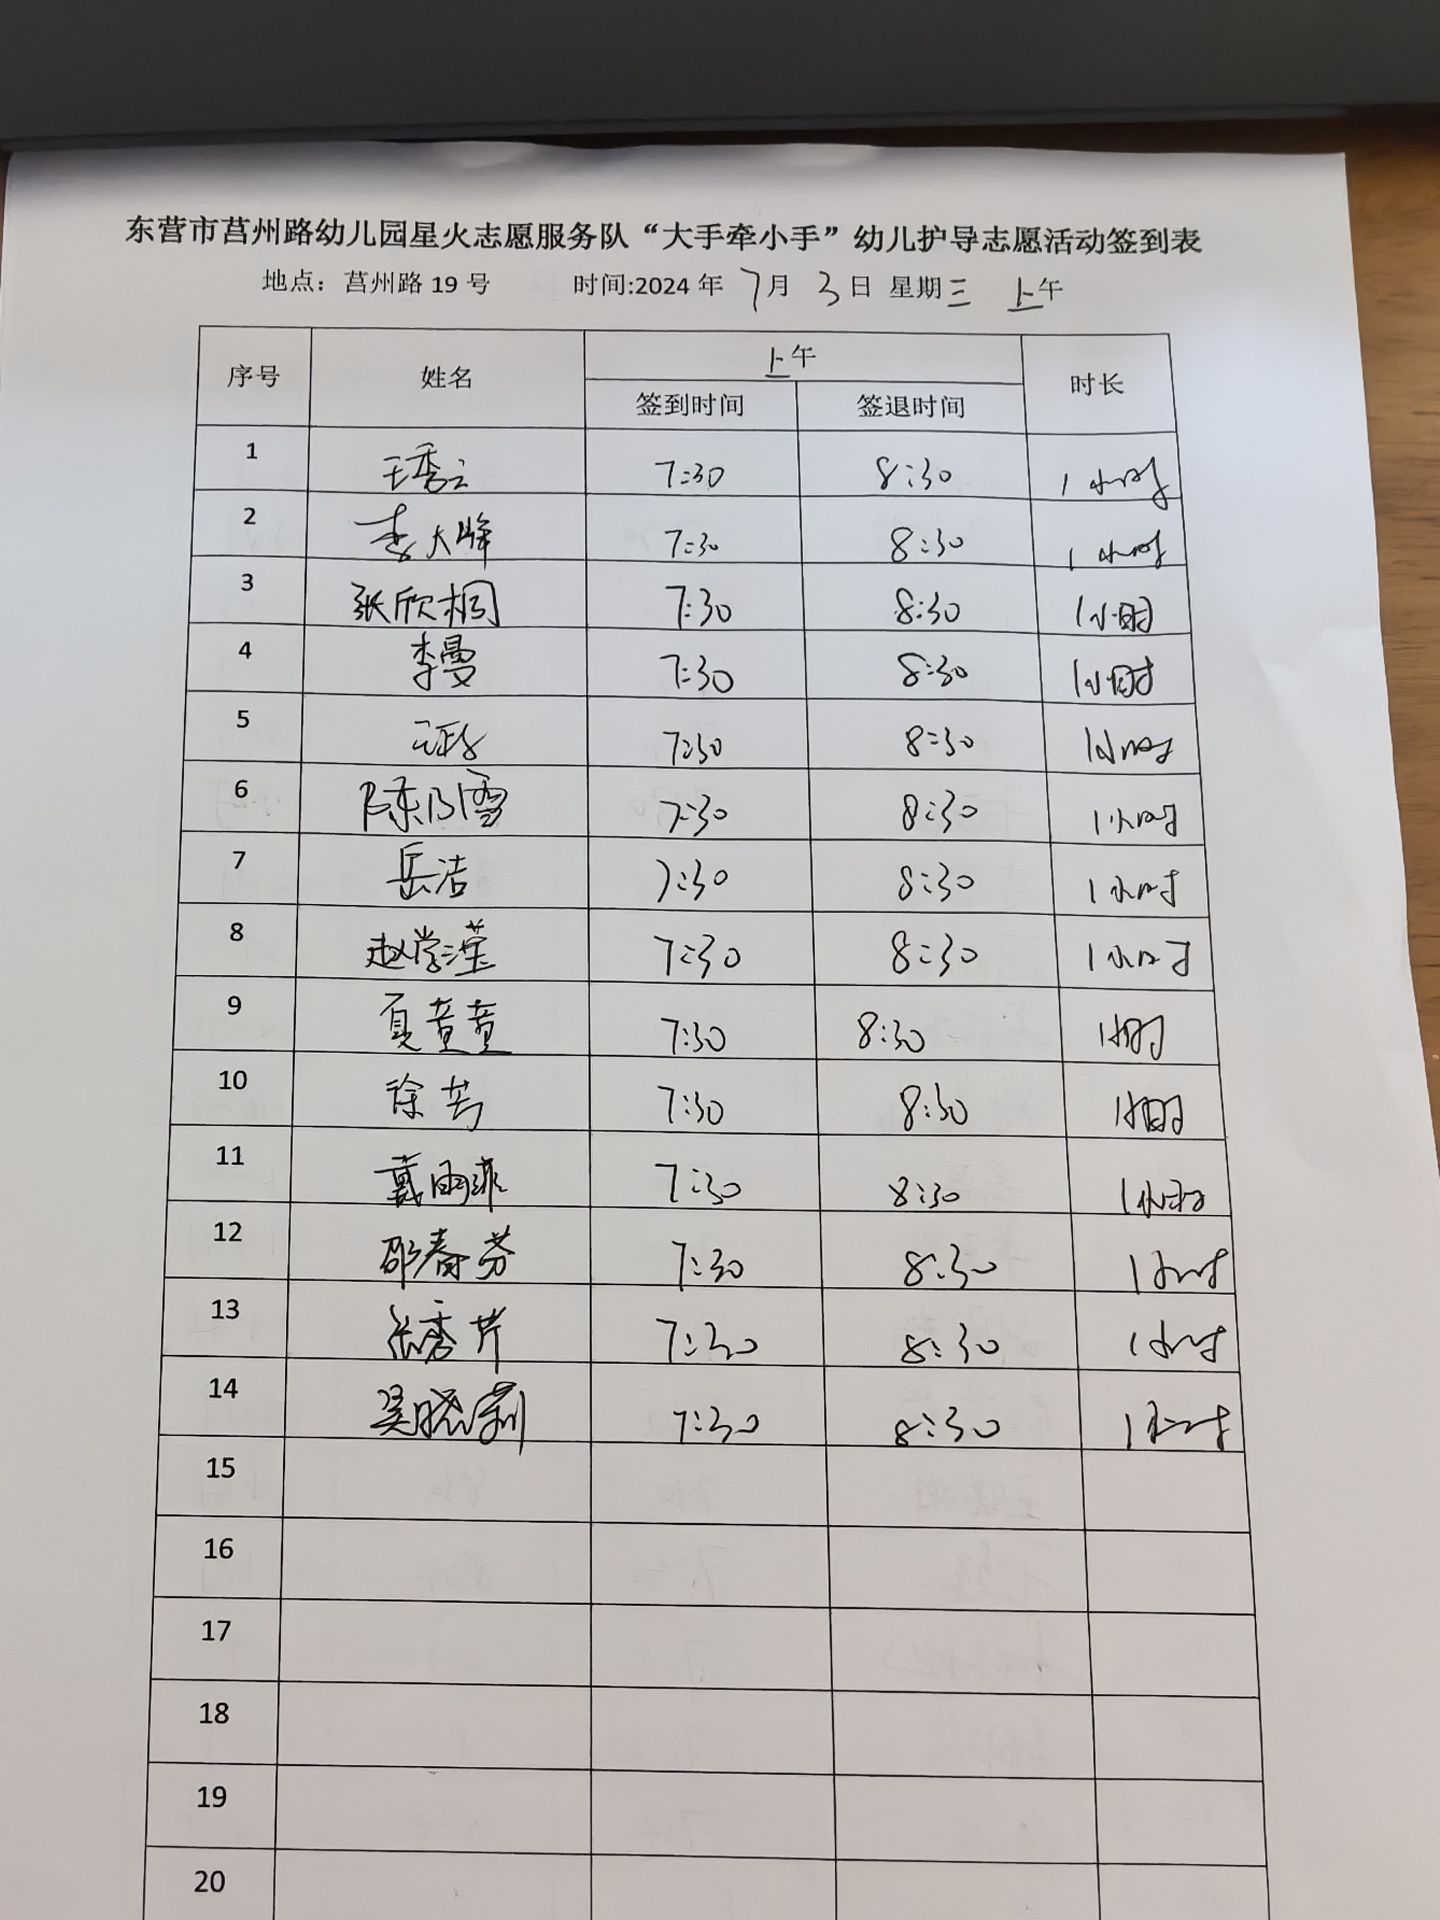 东营市莒州路幼儿园星火志愿服务队“大手牵小手”幼儿护导志愿活动签到表
地点：莒州路 19 号 时间:2024 年 7月 3日 星期三 上午
序号 姓名 上午 时长
签到时间 签退时间
1 王秀云 7:30 8:30 1小时
2 李大峰 7:30 8:30 1小时
3 张欣桐 7:30 8:30 1小时
4 李曼 7:30 8:30 1小时
5 7:30 8:30 1小时
6 陈乃雪 7:30 8:30 1小时
7 岳洁 7:30 8:30 1小时
8 赵学滢 7:30 8:30 1小时
9 夏萱萱 7:30 8:30 1小时
10 徐芳 7:30 8:30 1小时
11 戴雨菲 7:30 8:30 1小时
12 邵春芬 7:30 8:30 1小时
13 张秀芹 7:30 8:30 1小时
14 吴晓莉 7:30 8:30 1小时
15
16
17
18
19
20